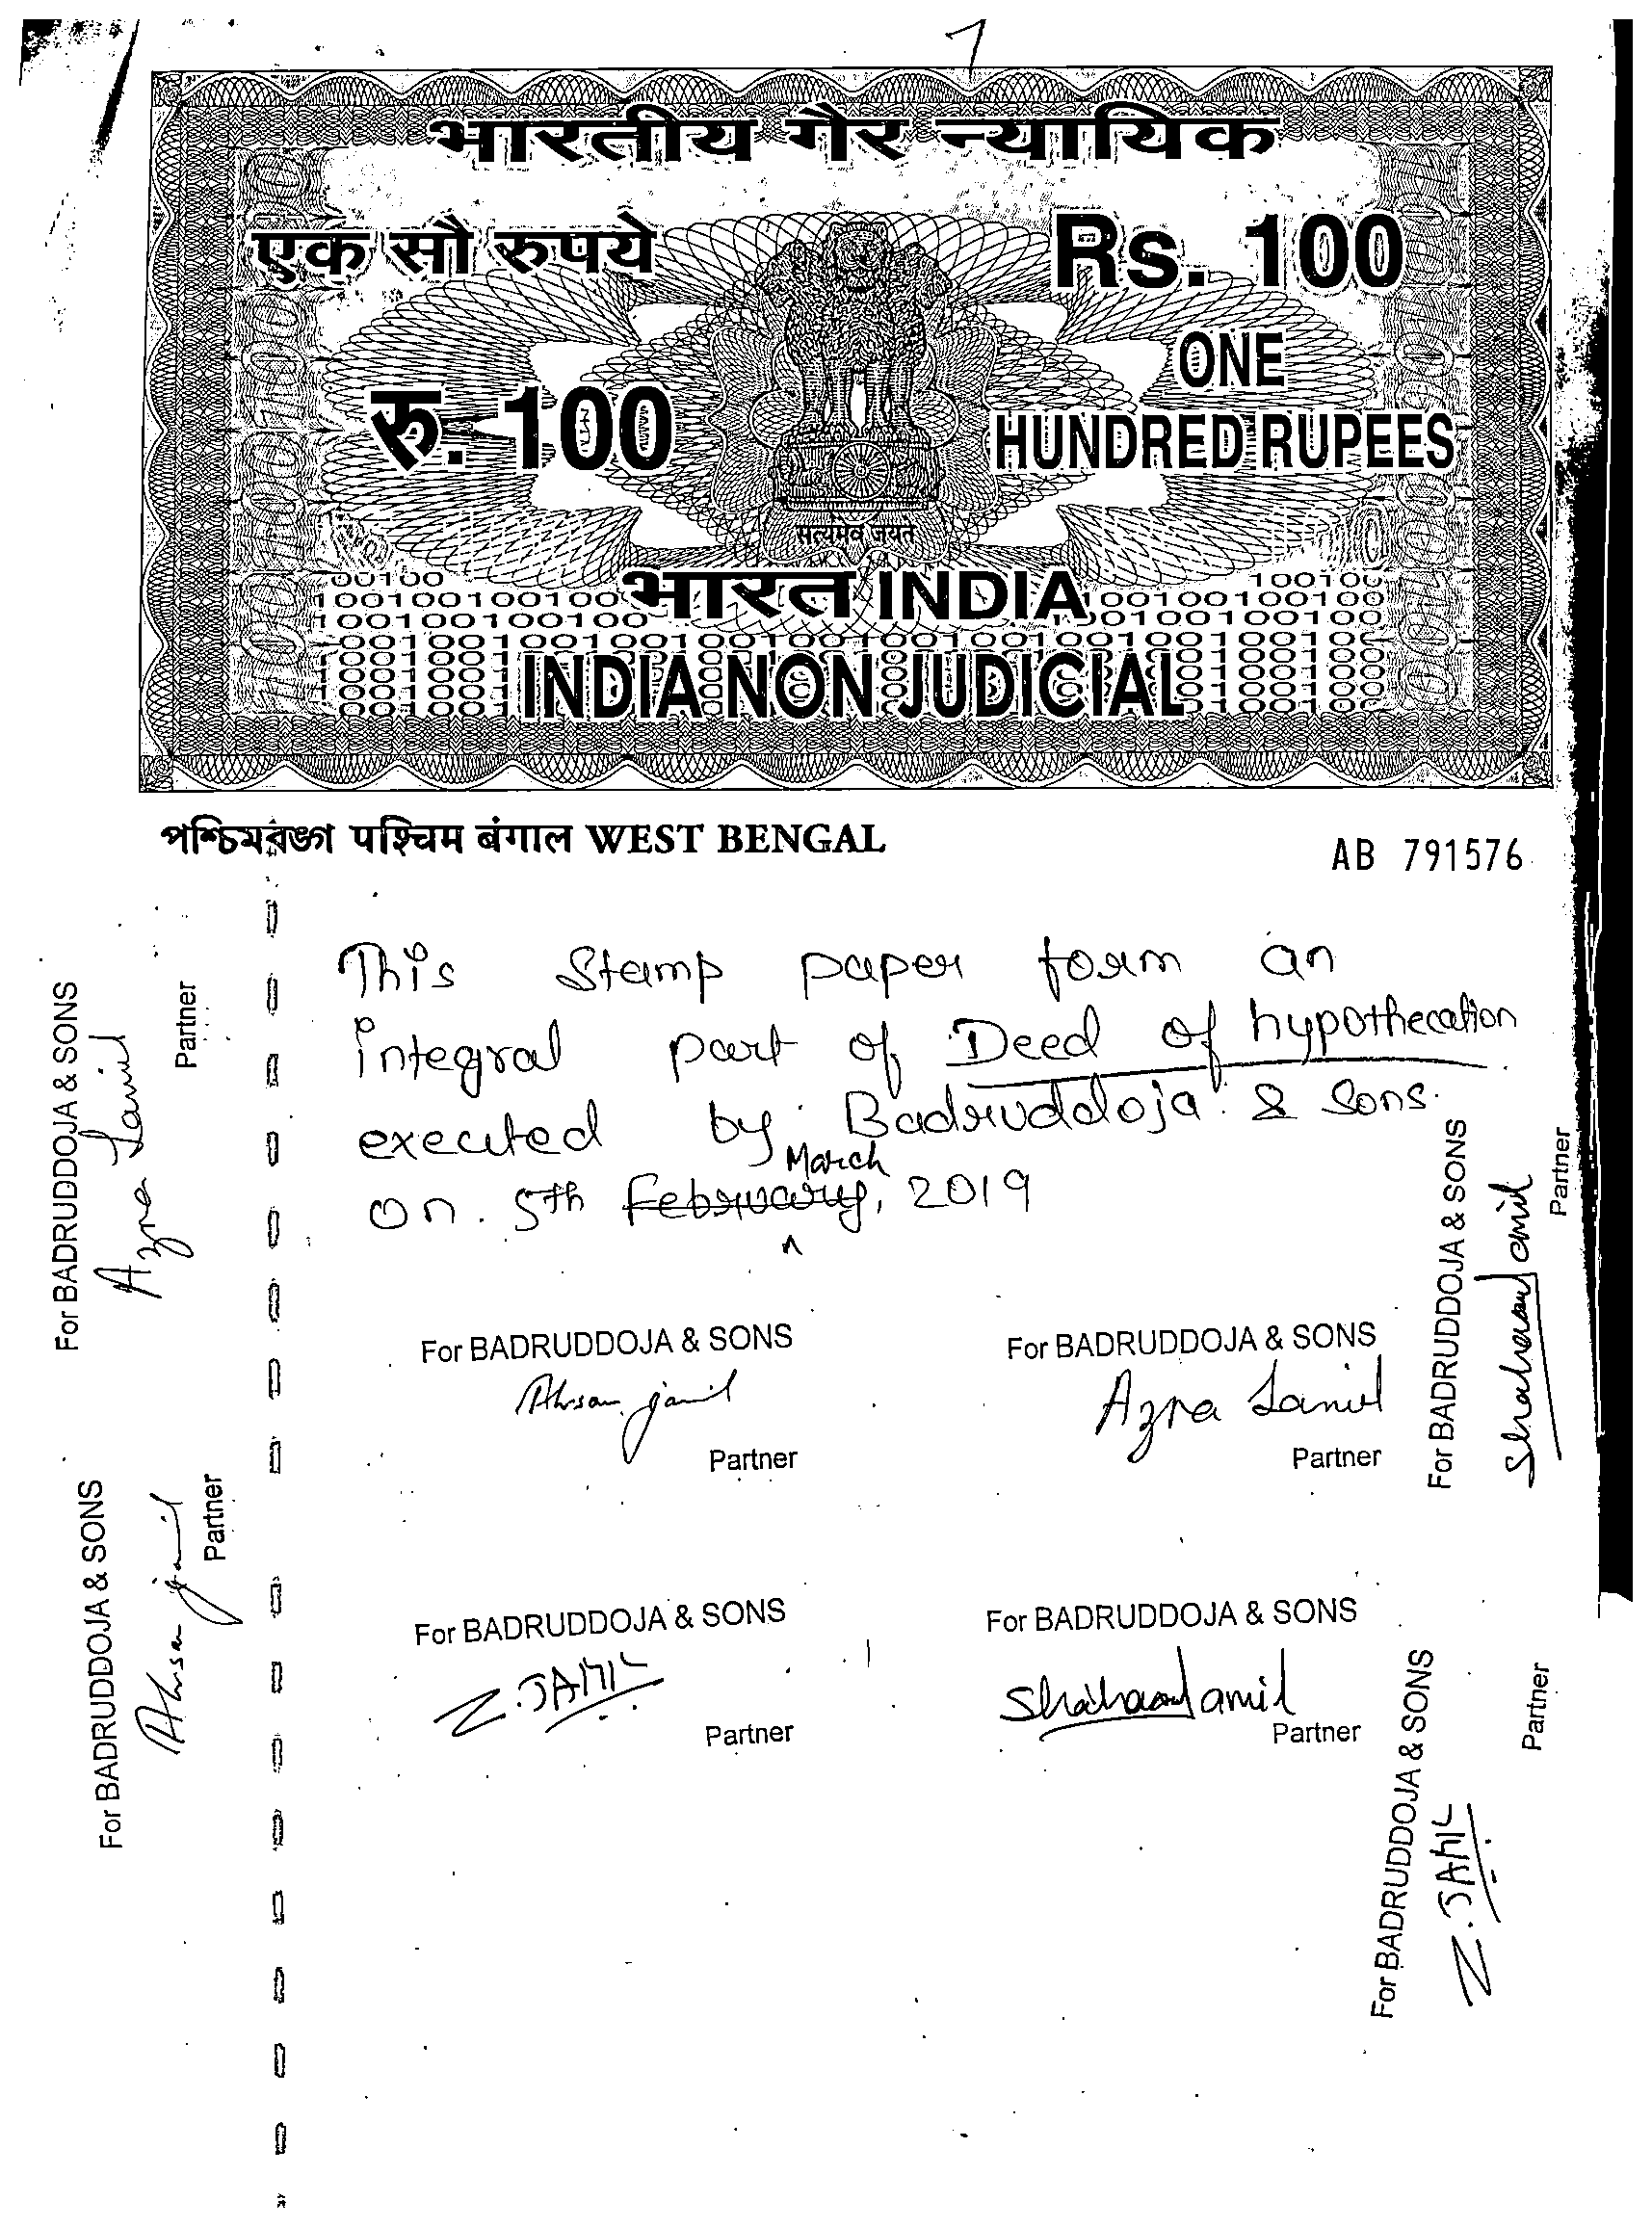 1
भारतीय गैर न्यायिक
एक सौ रुपये
Rs. 100
रु. 100
ONE
HUNDRED RUPEES
सत्यमेव जयते
भारत INDIA
INDIA NON JUDICIAL
পশ্চিমবঙ্গ पश्चिम बंगाल WEST BENGAL
AB 791576
This Stamp paper form an
integral part of Deed of hypothecation
executed by Badruddoja & Sons.
on 5th February, March 2019
For BADRUDDOJA & SONS
Ahsan Jamil
Partner
For BADRUDDOJA & SONS
Azra Jamil
Partner
For BADRUDDOJA & SONS
Z. JAMIL
Partner
For BADRUDDOJA & SONS
Partner
For BADRUDDOJA & SONS
Azra Jamil
Partner
For BADRUDDOJA & SONS
Ahsan Jamil
Partner
For BADRUDDOJA & SONS
Partner
For BADRUDDOJA & SONS
Z. JAMIL
Partner